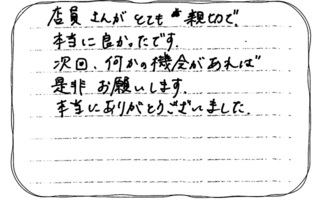 店員さんがとても親切で、
本当に良かったです。
次回、何かの機会があれば
是非お願いします。
本当にありがとうございました。